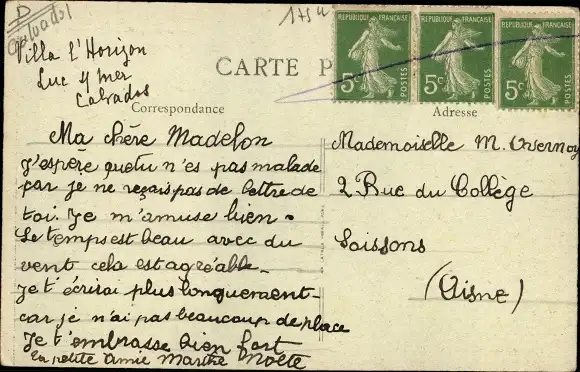 D
Calvados
1754
Villa l'Horizon
Luc s/ mer
Calvados
CARTE P
REPUBLIQUE FRANÇAISE
5c
POSTES
REPUBLIQUE FRANÇAISE
5c
POSTES
REPUBLIQUE FRANÇAISE
5c
POSTES
Correspondance
Ma chère Madelon
J'espère que tu n'es pas malade
car je ne reçois pas de lettre de
toi. Je m'amuse bien.
Le temps est beau avec du
vent cela est agréable.
Je t'écrirai plus longuement
car je n'ai pas beaucoup de place
Je t'embrasse bien fort
Ta petite amie Marthe
Adresse
Mademoiselle M.
2 Rue du Collège
Soissons
(Aisne)